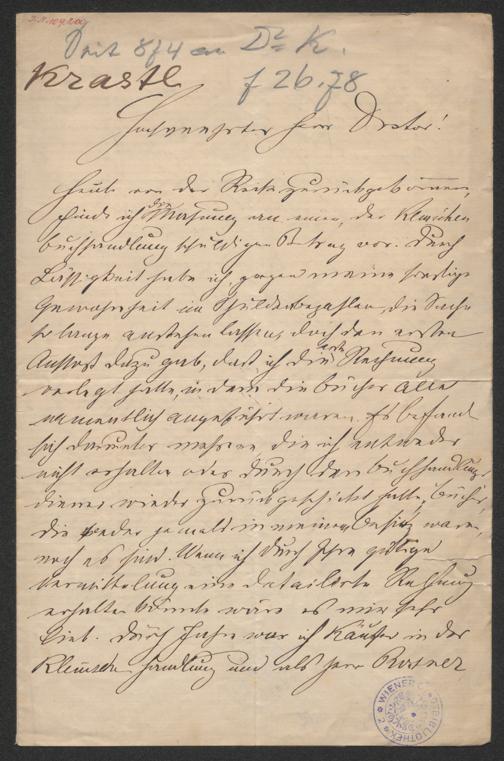 Dr K.
Krastl
26.78
Hochverehrter Herr Doctor!
Heute von der Reise zurückgekommen,
finde ich die Mahnung an einen, der Klemm'schen
Buchhandlung schuldigen Betrag vor. Durch
Lässigkeit habe ich gegen meine sonstige
Gewohnheit im Schuldenbezahlen, die Sache
so lange anstehen lassen, doch den ersten
Anstoß dazu gab, daß ich die erste Rechnung
verlegt hatte, in dem die Bücher alle
namentlich angeführt waren. Es befand
sich darunter mehrere die ich entweder
nicht erhalten oder durch den Buchhandlungs-
diener wieder zurückgeschickt hatte, Bücher,
die weder jemals in meinem Besitz waren,
noch es sind. Wenn ich durch Ihre gütige
Vermittelung eine detailierte Rechnung
erhalten könnte wäre es mir sehr
lieb. Durch Jahre war ich Käufer in der
Klemm'schen Handlung und als Herr Rosner
WIENER STADTBIBLIOTHEK